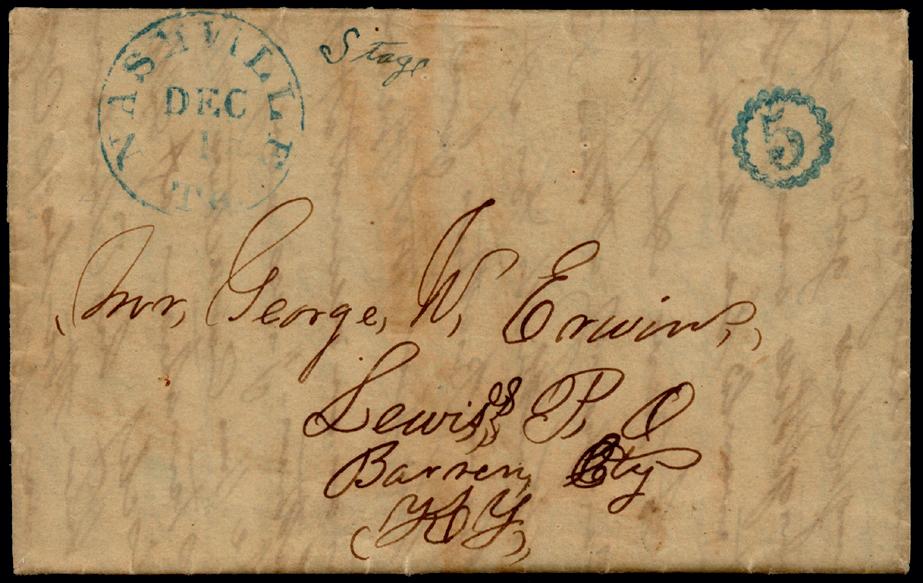 NASHVILLE
DEC
1
Stage
5
Mr, George, W, Erwin,
Lewis's P, O
Barren, Cty
(KY,)